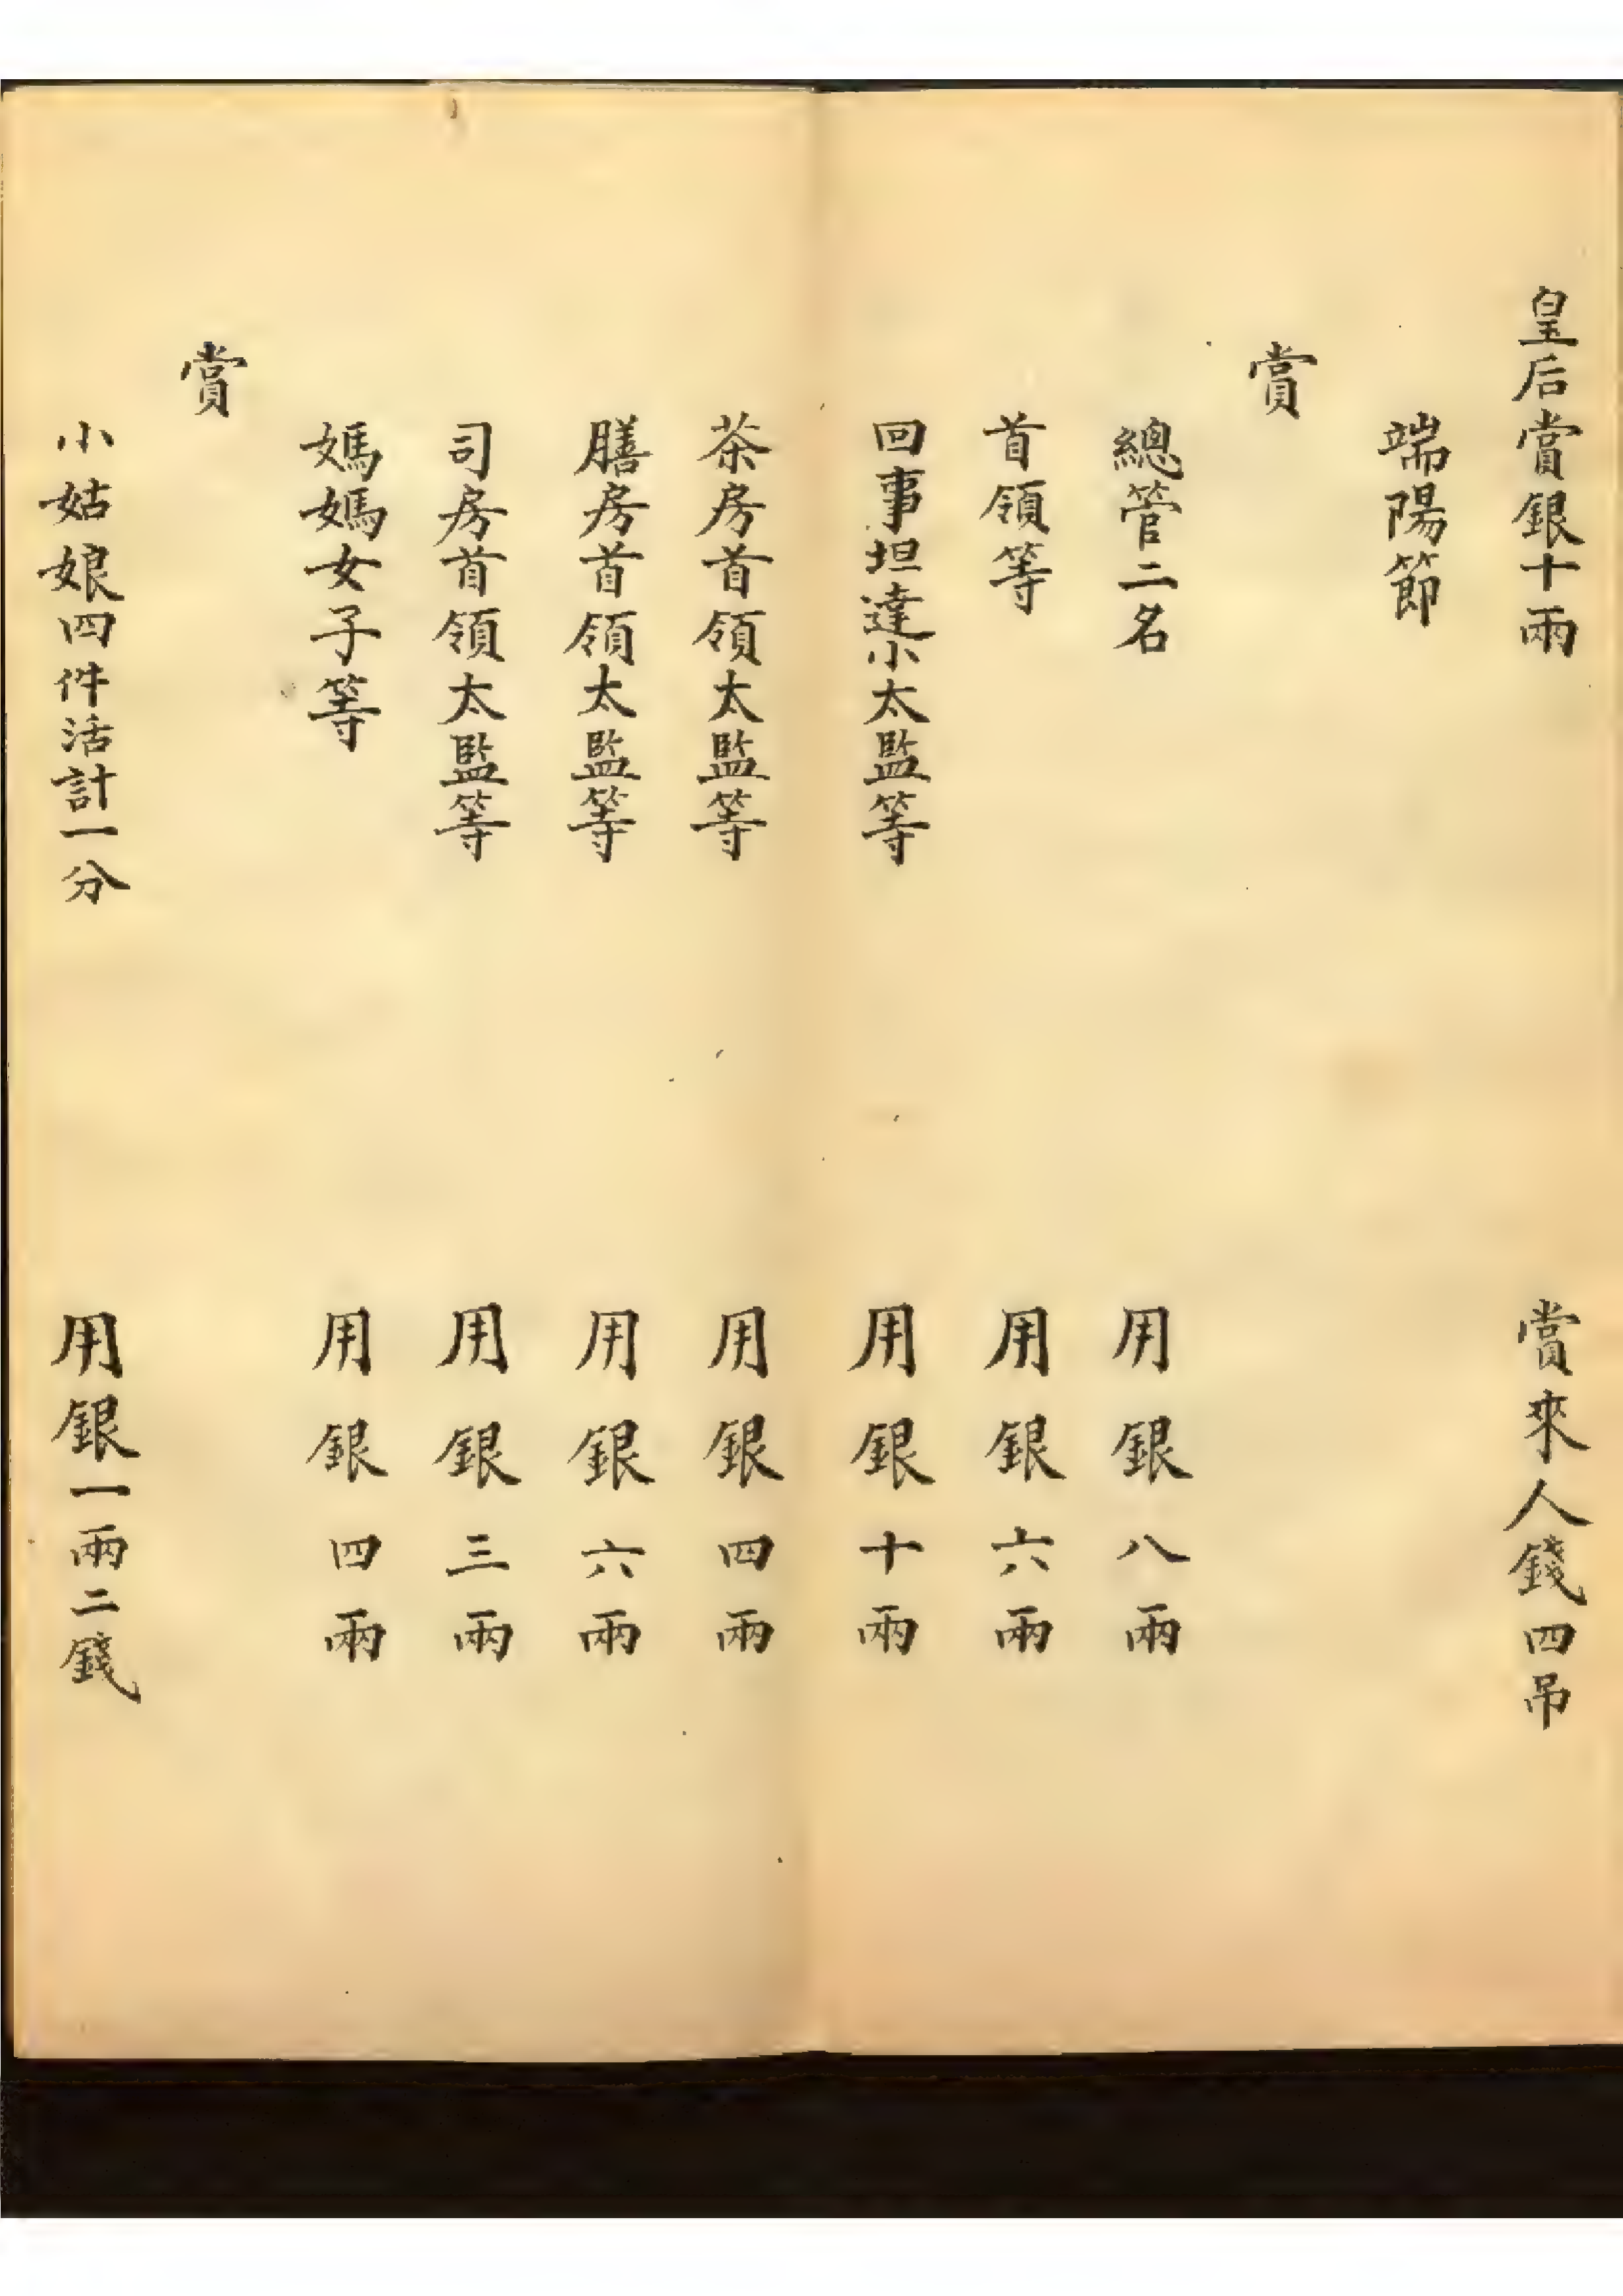 皇后賞銀十兩 賞來人錢四吊
端陽節
賞
總管二名 用銀八兩
首領等 用銀六兩
回事坦達小太監等 用銀十兩
茶房首領太監等 用銀四兩
膳房首領太監等 用銀六兩
司房首領太監等 用銀三兩
媽媽女子等 用銀四兩
賞
小姑娘四件活計一分 用銀一兩二錢